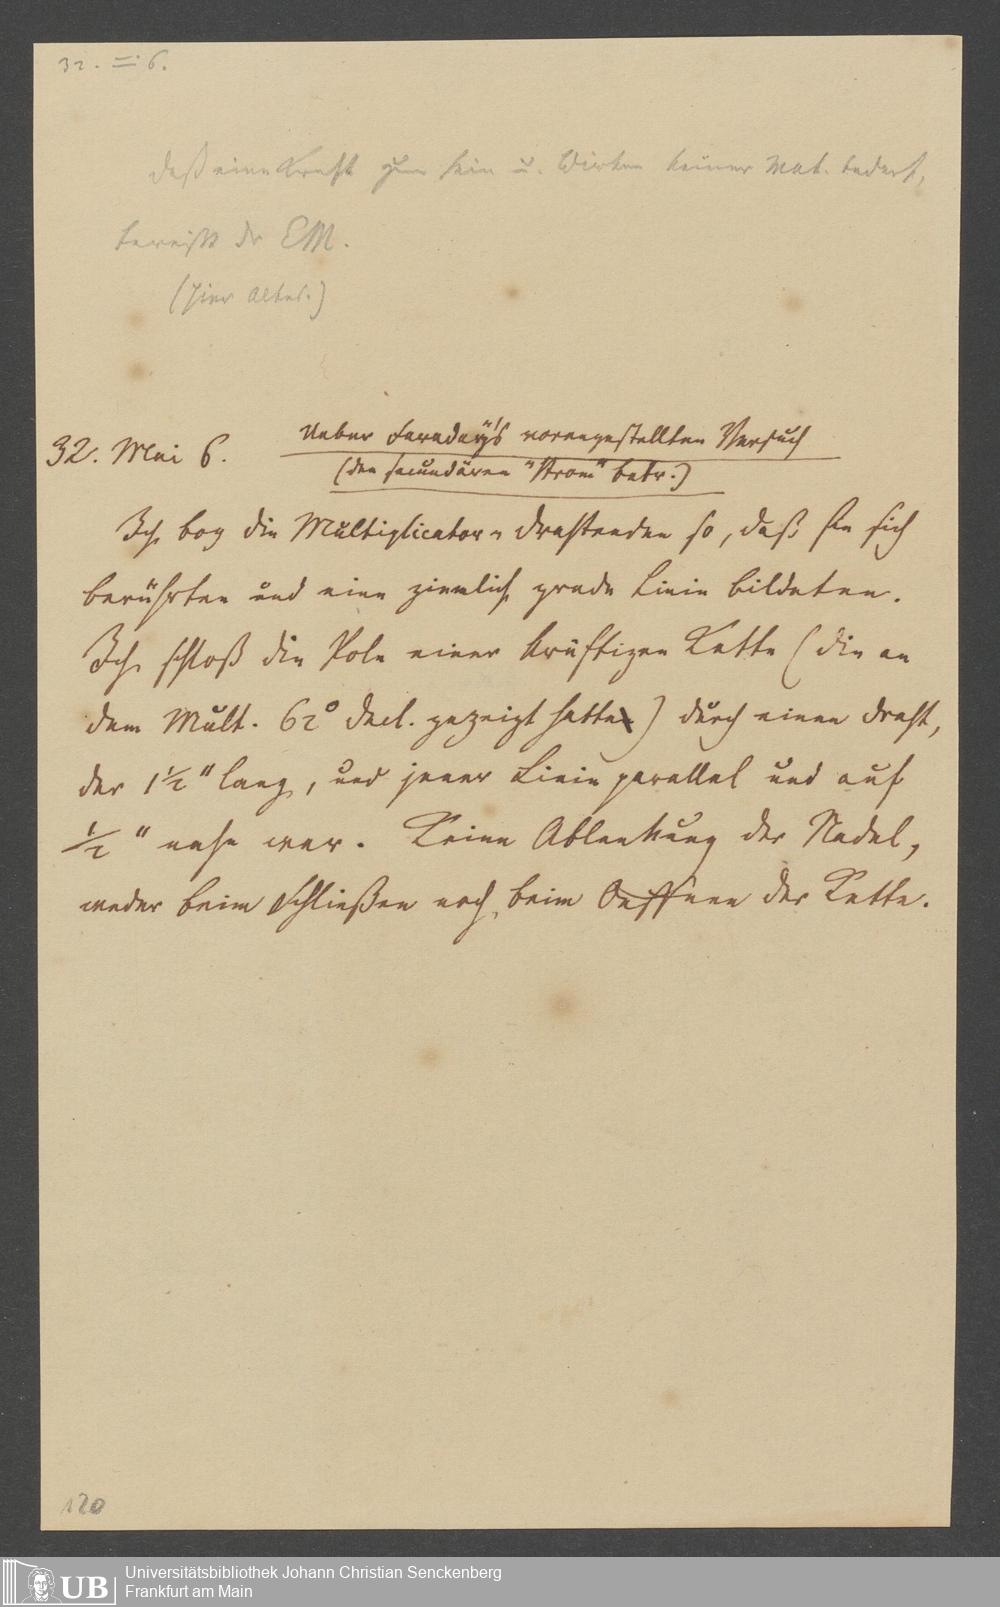 32. =. 6.
daß eine Kraft zum Sein u. Wirken keiner Mat. bedarf,
beweißt dr EM.
(hier
32. Mai 6.
Ueber Faraday's vorangestellten Versuch
(den secundären "Strom" betr.)
Ich bog die Multiplicator-Drahtenden so, daß sie sich
berührten und eine ziemlich grade Linie bildeten.
Ich schloß die Pole einer kräftigen Kette (die an
dem Mult. 62° decl. gezeigt hatte) durch einen Draht,
der 1½" lang, und jener Linie parallel und auf
½" nahe war. Keine Ablenkung der Nadel,
weder beim Schließen noch beim Oeffnen der Kette.
120
UB
Universitätsbibliothek Johann Christian Senckenberg
Frankfurt am Main